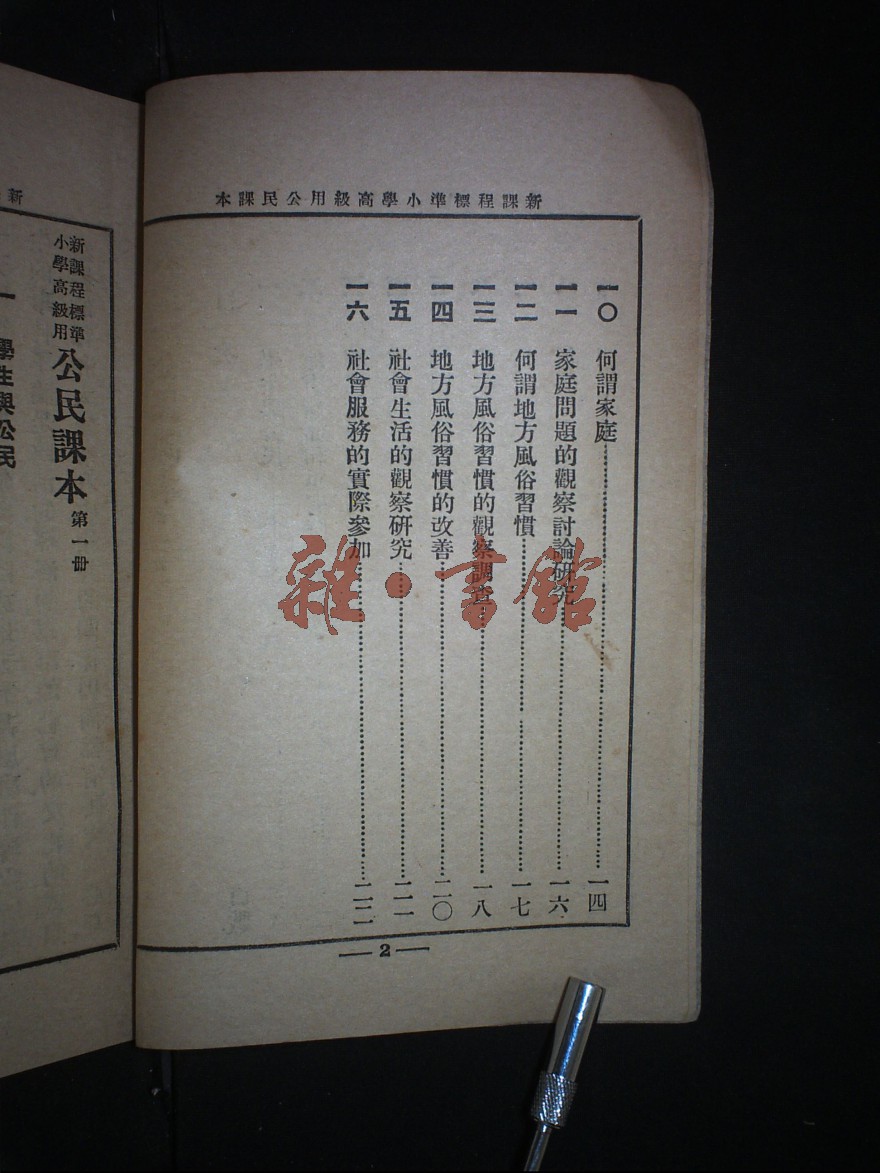 新課程標準小學高級用公民課本
一〇 何謂家庭 一四
一一 家庭問題的觀察討論研究 一六
一二 何謂地方風俗習慣 一七
一三 地方風俗習慣的觀察調查 一八
一四 地方風俗習慣的改善 二〇
一五 社會生活的觀察研究 二一
一六 社會服務的實際參加
2
新
新課程標準
小學高級用
公民課本 第一冊
一 學生與公民
雜·書館